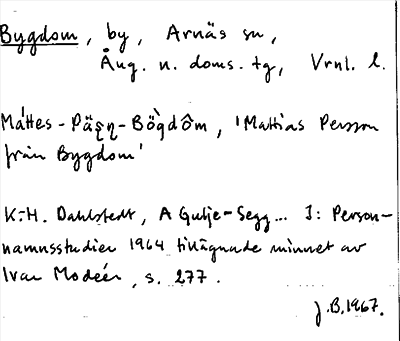 Bygdom, by, Arnäs sn,
Ång. n. doms. tg, Vrnl. l.
Máttes-Päṣṇ-Bö̀gdôm, 'Mattias Persson
från Bygdom'
K.-H. Dahlstedt, A Gulje-Segg... I: Person-
namnsstudier 1964 tillägnade minnet av
Ivar Modéer, s. 277.
J.B. 1967.